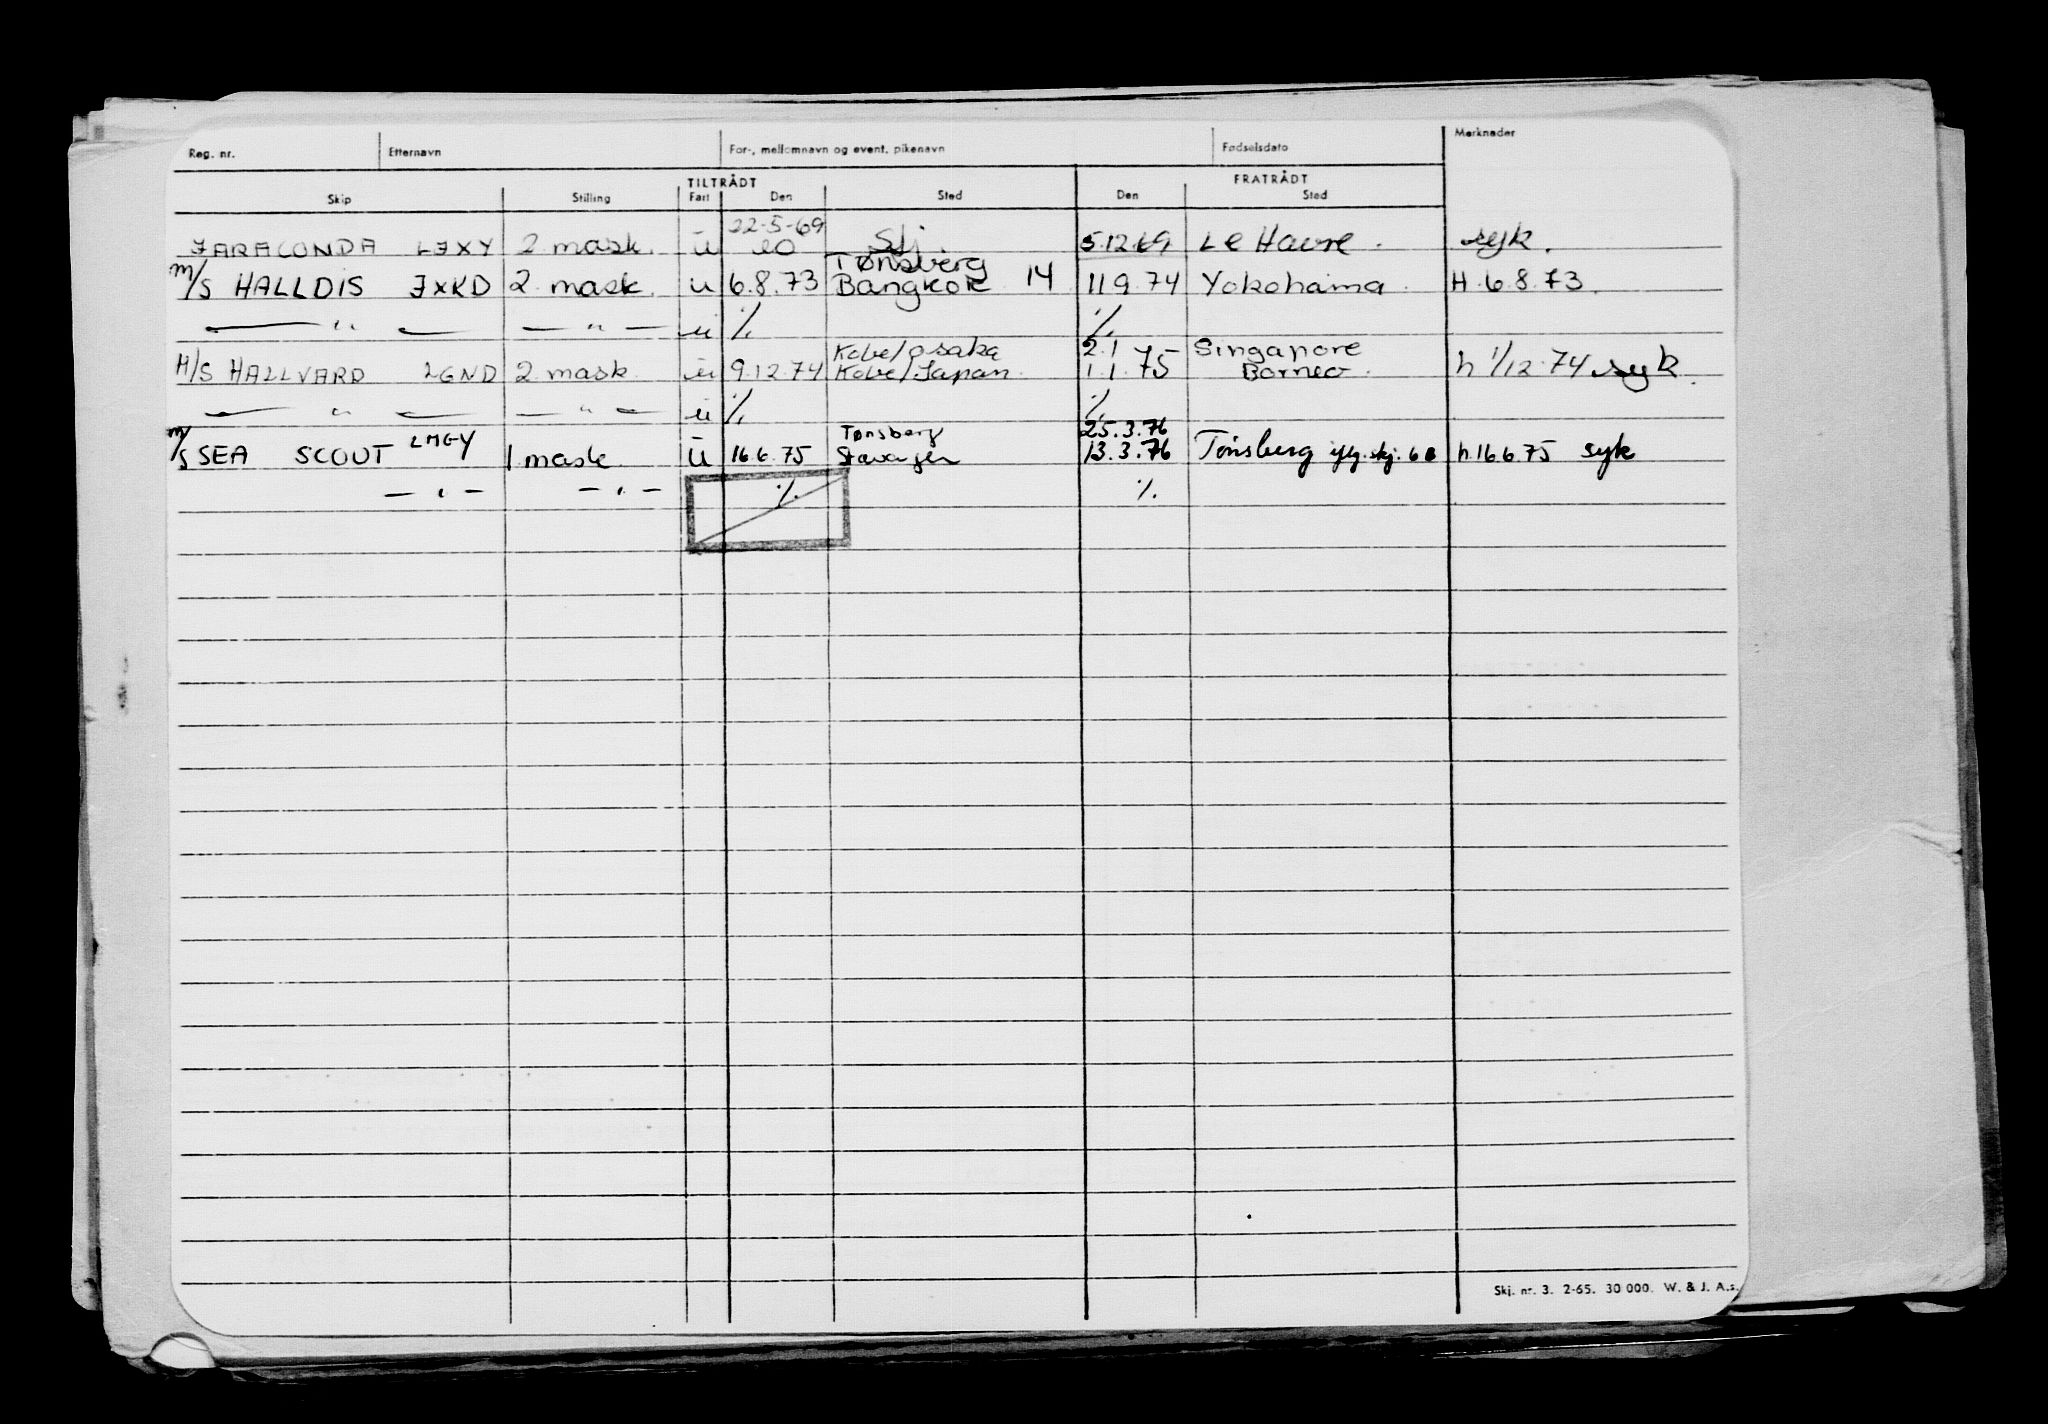 Reg. nr. Etternavn For-, mellomnavn og event. pikenavn Fødselsdato Merknader
TILTRÅDT FRATRÅDT
Skip Stilling Fart Den Sted Den Sted
22-5-69
JARACONDA LJXY 2 mask. u Slj. 5.12.69 Le Havre. syk.
Tønsberg
M/S HALLDIS JXKD 2 mask. u 6.8.73 Bangkok 14 11 9 74 Yokohama. H. 6.8.73.
— " — — " — u ./. ./.
Kobe/Osaka 2.1 Singapore
M/S HALLVARD LGND 2 mask. u 9.12.74 Kobe/Japan. 1.1.75 Borneo. h 1/12.74 syk.
— " — — " — u ./. ./.
Tønsberg 25.3.76
M/S SEA SCOUT LMGY 1 mask u 16.6.75 Stavanger 13.3.76 Tønsberg iflg. skj. 6 h.16.6.75 syk
— " — — " — ./. ./.
Skj. nr. 3. 2-65. 30 000. W. & J. A.s.